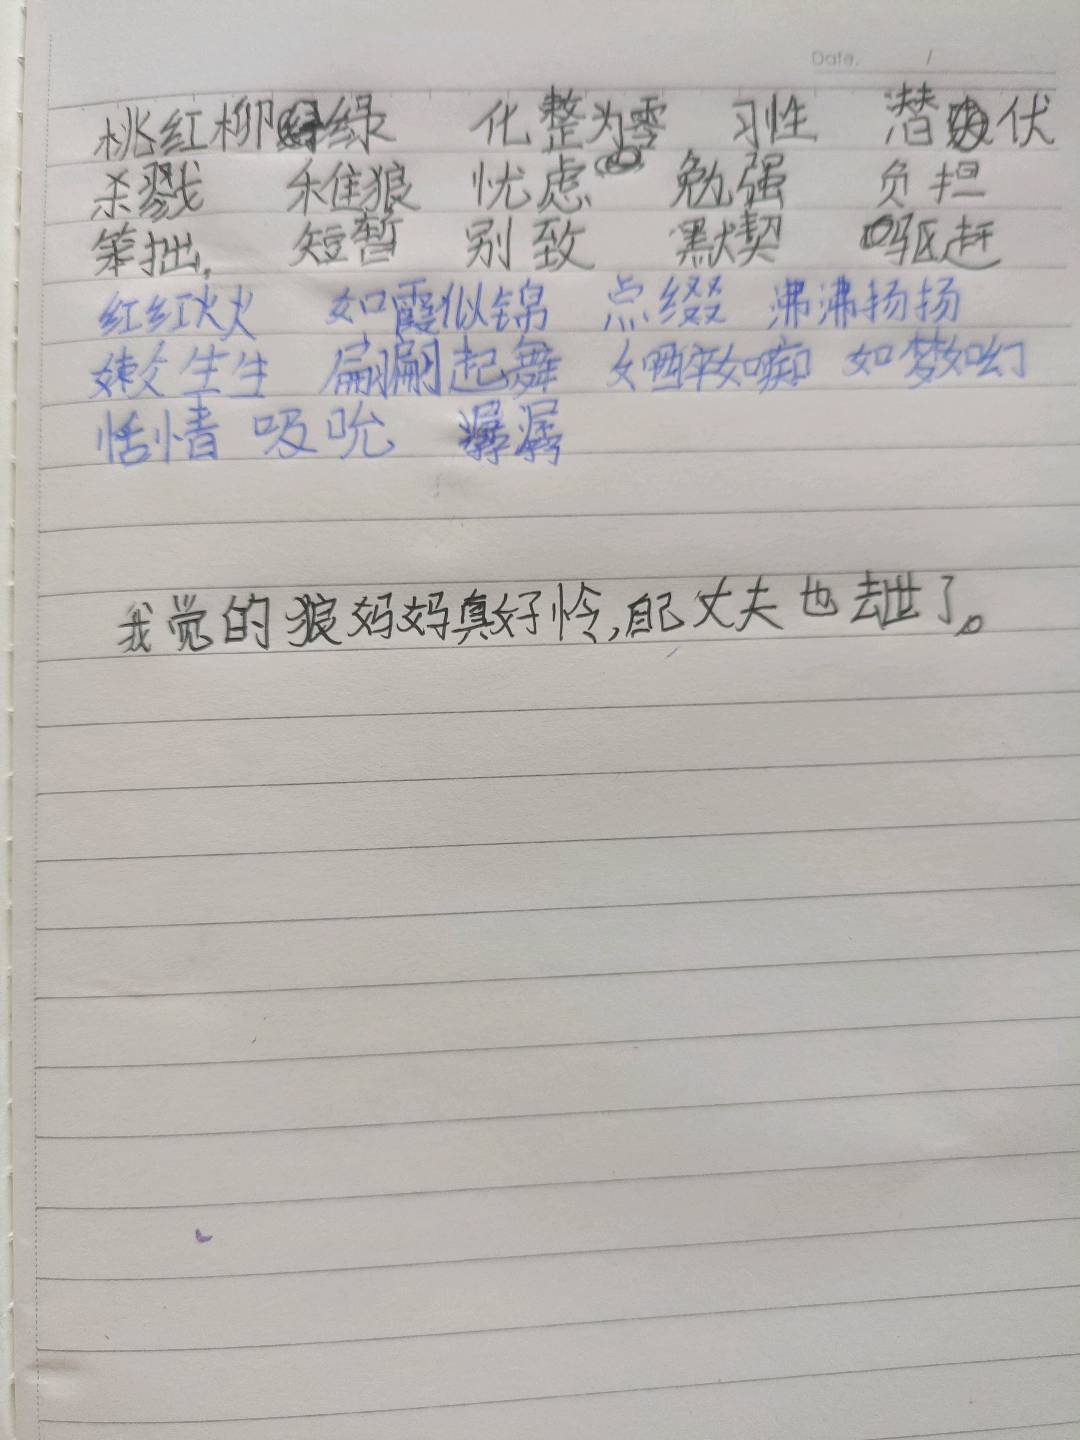 Date. /
桃红柳绿 化整为零 习性 潜伏
杀戮 雅狼 忧虑 勉强 负担
笨拙, 短暂 别致 默契 驱赶
红红火火 如霞似锦 点缀 沸沸扬扬
嫩生生 翩翩起舞 如醉如痴 如梦如幻
恬情 吸吮 潺潺
我觉的狼妈妈真好怜,自己丈夫也去世了。